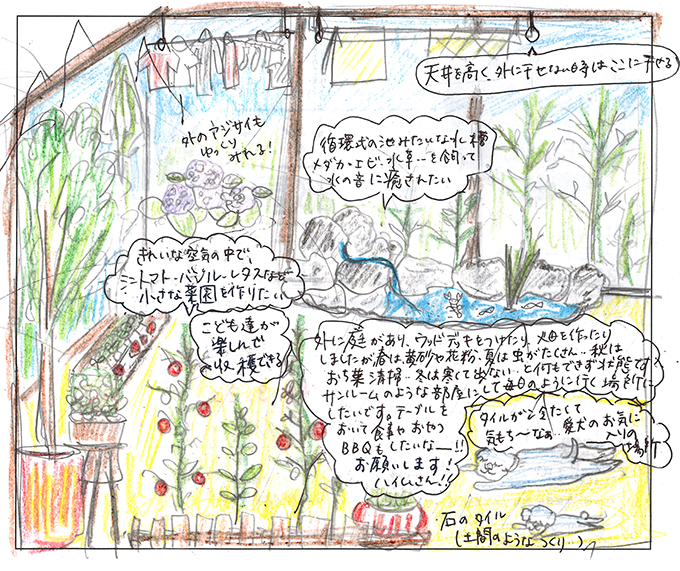 天井を高く、外に干せない時はここに干せる!
外のアジサイも
ゆっくり
みれる!
循環式の池みたいな水槽
メダカ・エビ・水草…を飼って
水の音に癒されたい
きれいな空気の中で、
トマト・バジル・レタスなど
小さな菜園を作りたい
こども達が
楽しんで
収穫できる
外に庭があり、ウッドデッキをつけたり、畑を作ったり
しましたが春は黄砂や花粉・夏は虫がたくさん…秋は
おち葉清掃…冬は寒くて出ない…と何もできず状態です
サンルームのような部屋にして毎日のように行く場所に
したいです。テーブルを
おいて食事やおやつ
BBQもしたいなー!!
お願いします!
ハイムさん!!
タイルが冷たくて
気もち〜なぁ…愛犬のお気に
入りの
場所
石のタイル
(土間のようなつくり…)